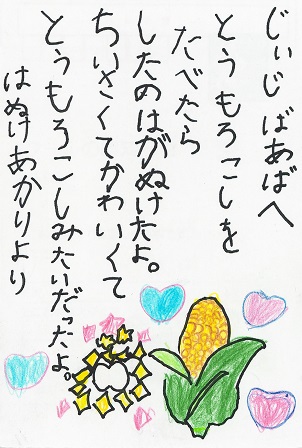 じぃじ ばあばへ
とうもろこしを
たべたら
したのはがぬけたよ。
ちいさくてかわいくて
とうもろこしみたいだったよ。
はぬけあかりより